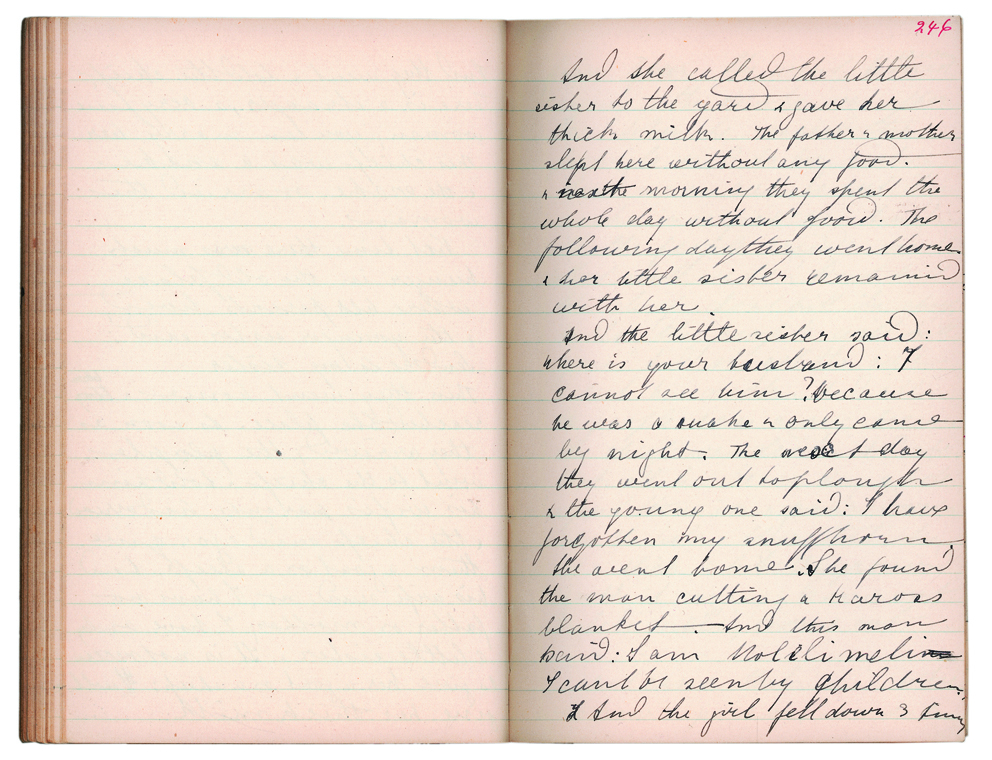 246
And she called the little
sister to the yard & gave her
thick milk. The father & mother
slept here without any food.
& next morning they spent the
whole day without food. The
following day they went home
& her little sister remained
with her.
And the little sister said:
where is your husband: I
cannot see him? because
he was a snake & only came
by night. The next day
they went out to plough
& the young one said: I have
forgotten my snuffhorn,
She went home. She found
the man cutting a Kaross
blanket. And this man
said: I am
I cant be seen by children.
And the girl fell down 3 times